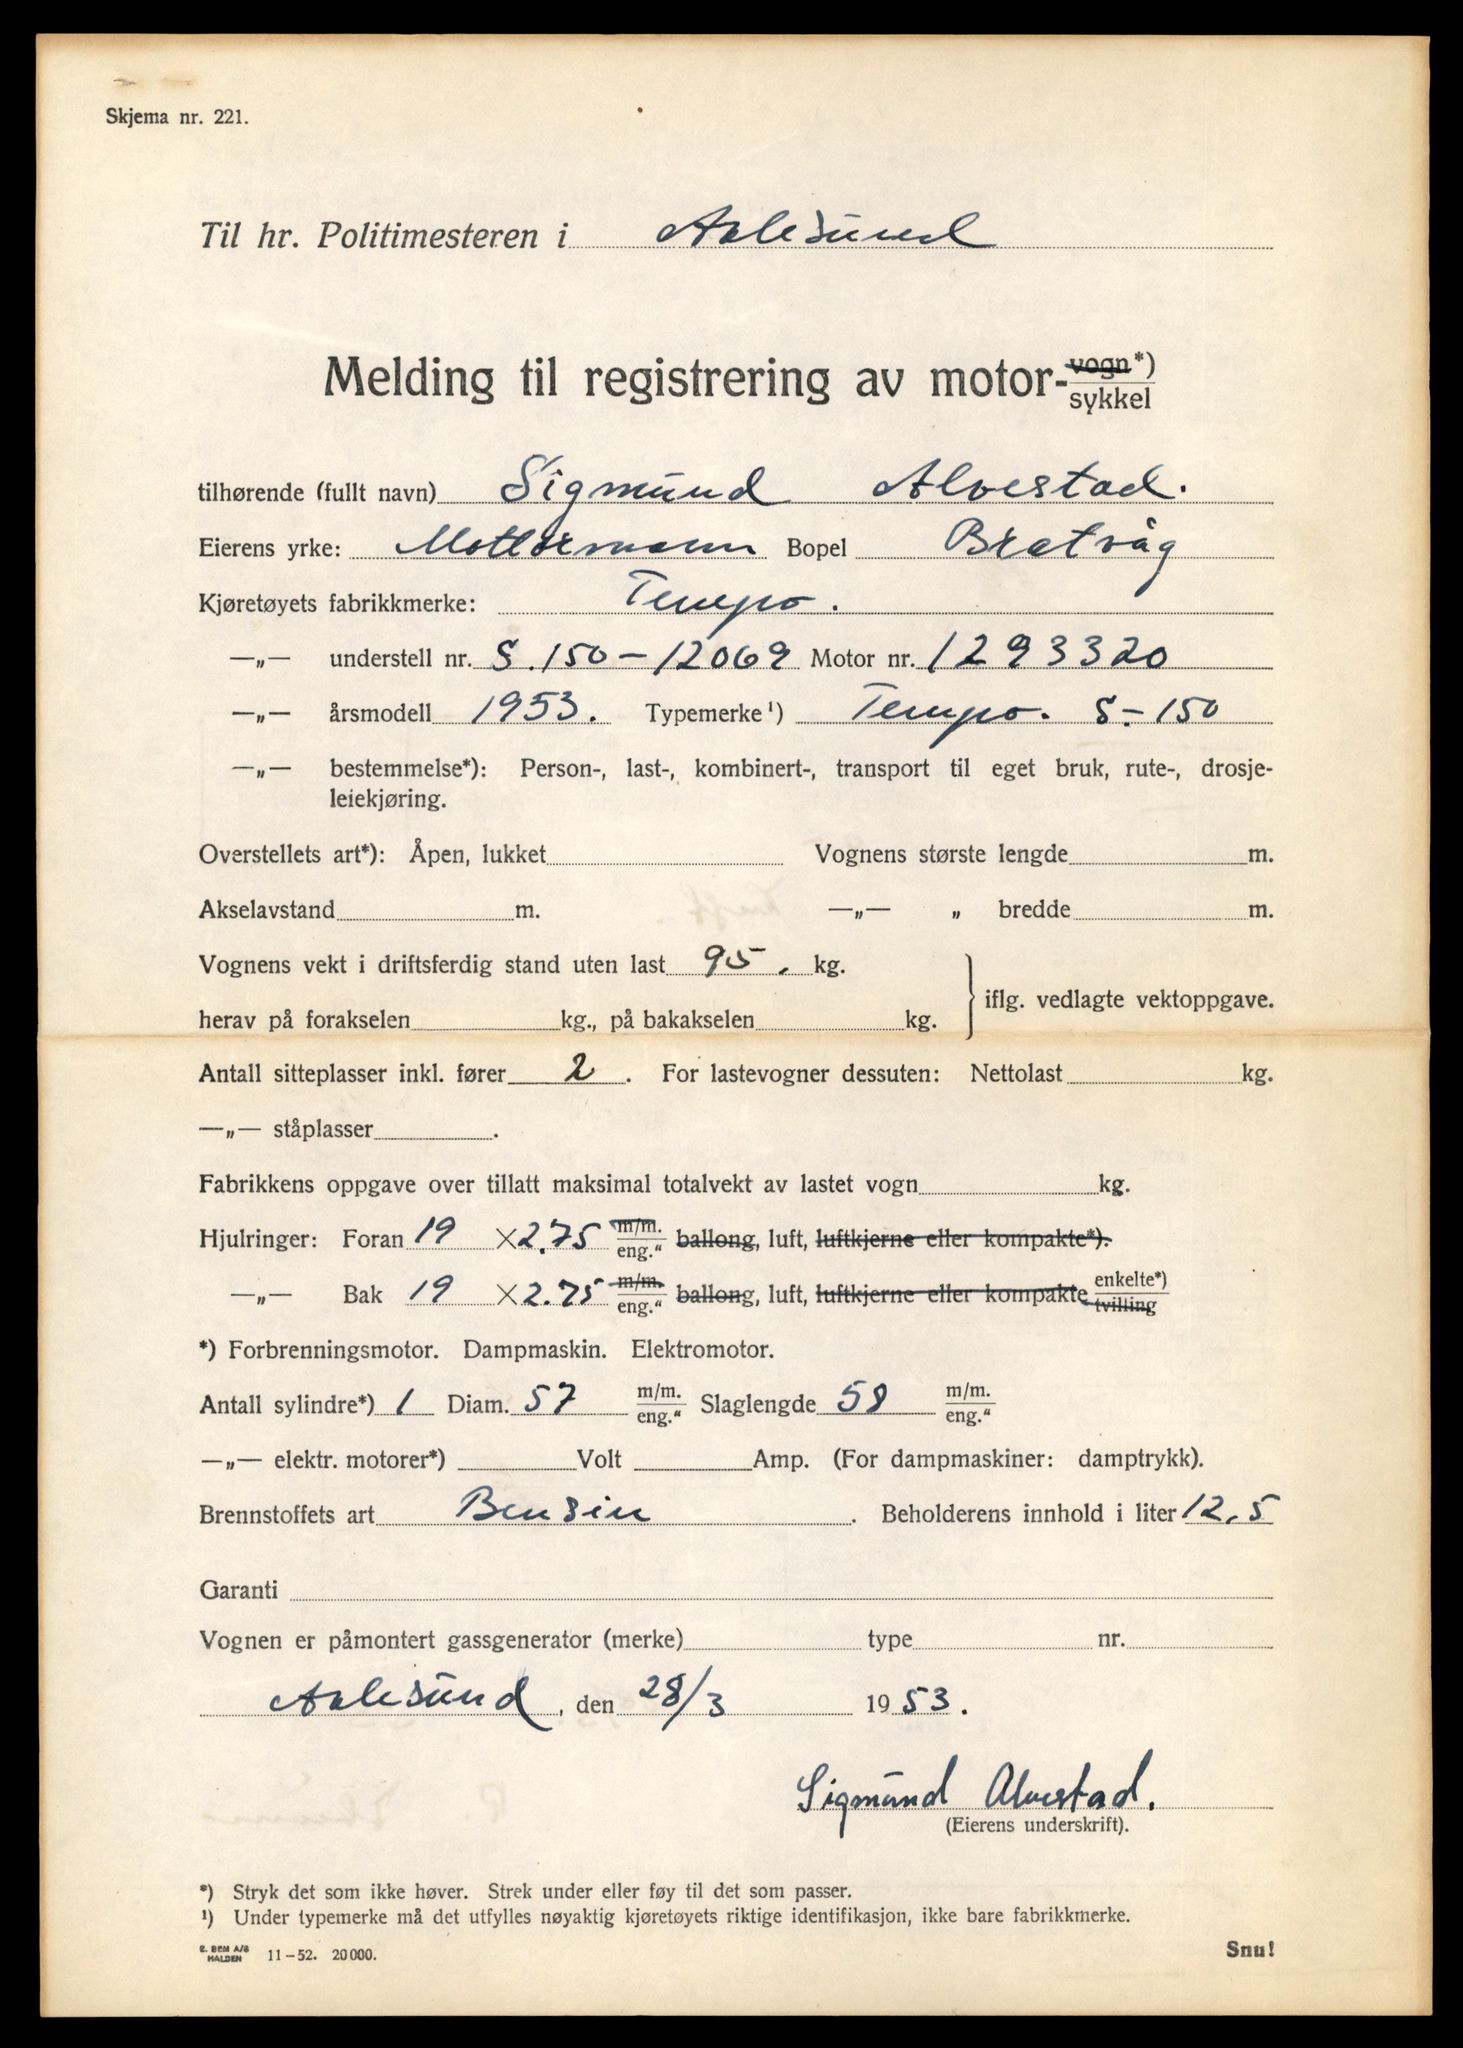 Skjema nr. 221.
Til hr. Politimesteren i Aalesund
Melding til registrering av motor- vogn*) sykkel
tilhørende (fullt navn) Sigmund Alvestad.
Eierens yrke: Mottormann Bopel Bratvåg
Kjøretøyets fabrikkmerke: Tempo.
—„— understell nr. S.150-12069 Motor nr. 1293320
—„— årsmodell 1953. Typemerke¹) Tempo. S-150
—„— bestemmelse*): Person-, last-, kombinert-, transport til eget bruk, rute-, drosje-
leiekjøring.
Overstellets art*): Åpen, lukket Vognens største lengde m.
Akselavstand m. —„— „ bredde m.
Vognens vekt i driftsferdig stand uten last 95. kg.
iflg. vedlagte vektoppgave.
herav på forakselen kg., på bakakselen kg.
Antall sitteplasser inkl. fører 2. For lastevogner dessuten: Nettolast kg.
—„— ståplasser .
Fabrikkens oppgave over tillatt maksimal totalvekt av lastet vogn kg.
Hjulringer: Foran 19 ×2.75 m/m. eng.“ ballong, luft, luftkjerne eller kompakte*).
—„— Bak 19 ×2.75 m/m. eng.“ ballong, luft, luftkjerne eller kompakte enkelte*) tvilling
*) Forbrenningsmotor. Dampmaskin. Elektromotor.
Antall sylindre*) 1 Diam. 57 m/m. eng.“ Slaglengde 58 m/m. eng.“
—„— elektr. motorer*) Volt Amp. (For dampmaskiner: damptrykk).
Brennstoffets art Bensin . Beholderens innhold i liter 12,5
Garanti
Vognen er påmontert gassgenerator (merke) type nr.
Aalesund, den 28/3 1953.
Sigmund Alvestad.
(Eierens underskrift).
*) Stryk det som ikke høver. Strek under eller føy til det som passer.
¹) Under typemerke må det utfylles nøyaktig kjøretøyets riktige identifikasjon, ikke bare fabrikkmerke.
E. BEM A/S
HALDEN 11–52. 20000.
Snu!